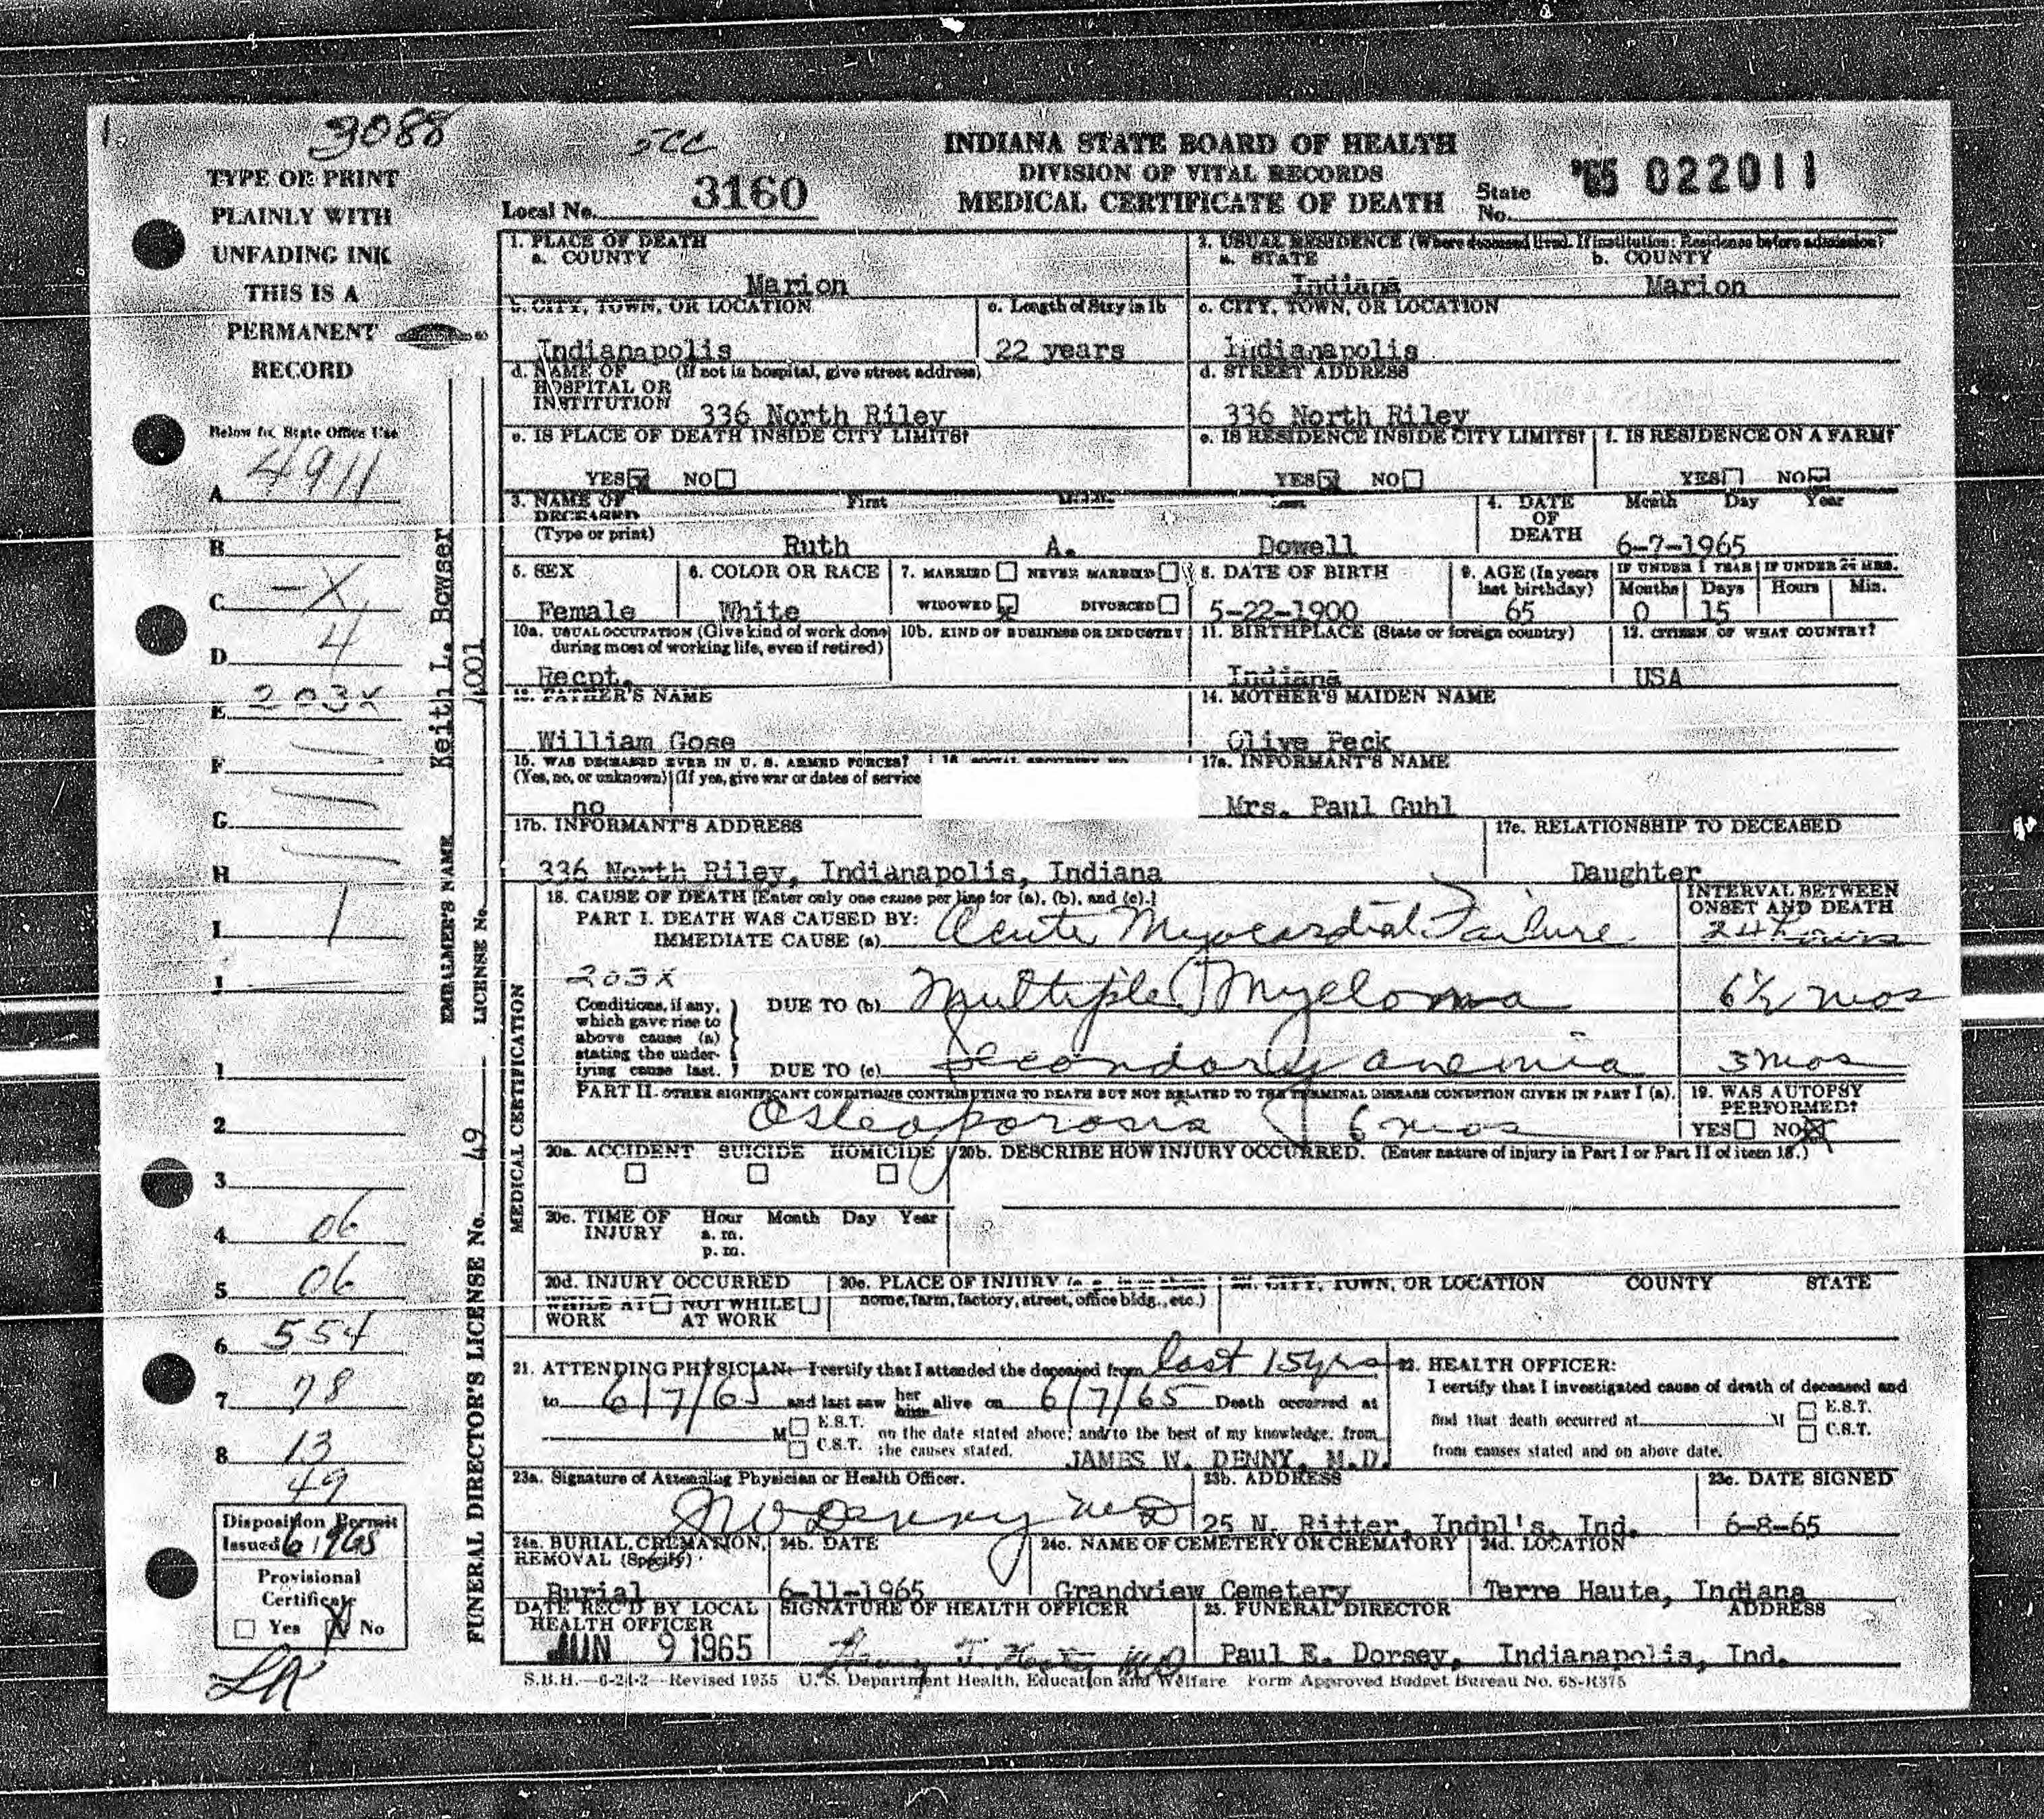 3088
TYPE OR PRINT
PLAINLY WITH
UNFADING INK
THIS IS A
PERMANENT
RECORD
Below for State Office Use
A 4911
B
C -X
D 4
E 203X
F
G
H
I 1
J
1
2
3
4 06
5 06
6 554
7 78
8 13
49
Disposition Permit
Issued 6 1965
Provisional
Certificate
Yes X No
EMBALMER'S NAME Keith L. Bowser
LICENSE No. 4001
FUNERAL DIRECTOR'S LICENSE No. 49
INDIANA STATE BOARD OF HEALTH
DIVISION OF VITAL RECORDS
MEDICAL CERTIFICATE OF DEATH
Local No. 3160
State No. '65 022011
1. PLACE OF DEATH
a. COUNTY
Marion
2. USUAL RESIDENCE (Where deceased lived. If institution: Residence before admission)
a. STATE b. COUNTY
Indiana Marion
b. CITY, TOWN, OR LOCATION c. Length of Stay in 1b
Indianapolis 22 years
c. CITY, TOWN, OR LOCATION
Indianapolis
d. NAME OF (If not in hospital, give street address)
HOSPITAL OR
INSTITUTION 336 North Riley
d. STREET ADDRESS
336 North Riley
e. IS PLACE OF DEATH INSIDE CITY LIMITS?
YES NO
e. IS RESIDENCE INSIDE CITY LIMITS? f. IS RESIDENCE ON A FARM?
YES NO YES NO
3. NAME OF DECEASED First Middle Last
(Type or print) Ruth A. Dowell
4. DATE OF DEATH Month Day Year
6-7-1965
5. SEX
Female
6. COLOR OR RACE
White
7. MARRIED NEVER MARRIED
WIDOWED DIVORCED
8. DATE OF BIRTH
5-22-1900
9. AGE (In years last birthday)
65
IF UNDER 1 YEAR IF UNDER 24 HRS.
Months Days Hours Min.
0 15
10a. USUAL OCCUPATION (Give kind of work done during most of working life, even if retired)
Recpt.
10b. KIND OF BUSINESS OR INDUSTRY
11. BIRTHPLACE (State or foreign country)
Indiana
12. CITIZEN OF WHAT COUNTRY?
USA
13. FATHER'S NAME
William Gose
14. MOTHER'S MAIDEN NAME
Olive Peck
15. WAS DECEASED EVER IN U. S. ARMED FORCES?
(Yes, no, or unknown) (If yes, give war or dates of service
no
16. SOCIAL SECURITY NO.
17a. INFORMANT'S NAME
Mrs. Paul Guhl
17b. INFORMANT'S ADDRESS
336 North Riley, Indianapolis, Indiana
17c. RELATIONSHIP TO DECEASED
Daughter
MEDICAL CERTIFICATION
18. CAUSE OF DEATH [Enter only one cause per line for (a), (b), and (c).]
INTERVAL BETWEEN ONSET AND DEATH
PART I. DEATH WAS CAUSED BY:
IMMEDIATE CAUSE (a) Acute Myocardial Failure 24 hours
203X
Conditions, if any, which gave rise to above cause (a) stating the underlying cause last.
DUE TO (b) Multiple Myeloma 6½ mos
DUE TO (c) Secondary anemia 3 mos
PART II. OTHER SIGNIFICANT CONDITIONS CONTRIBUTING TO DEATH BUT NOT RELATED TO THE TERMINAL DISEASE CONDITION GIVEN IN PART I (a).
Osteoporosis 6 mos
19. WAS AUTOPSY PERFORMED?
YES NO
20a. ACCIDENT SUICIDE HOMICIDE
20b. DESCRIBE HOW INJURY OCCURRED. (Enter nature of injury in Part I or Part II of item 18.)
20c. TIME OF INJURY Hour Month Day Year
a. m.
p. m.
20d. INJURY OCCURRED
WHILE AT WORK NOT WHILE AT WORK
20e. PLACE OF INJURY (e. g., in or about home, farm, factory, street, office bldg., etc.)
20f. CITY, TOWN, OR LOCATION COUNTY STATE
21. ATTENDING PHYSICIAN: I certify that I attended the deceased from last 15 yrs
to 6/7/65 and last saw her him alive on 6/7/65 Death occurred at
M E.S.T. C.S.T. on the date stated above; and to the best of my knowledge, from the causes stated.
JAMES W. DENNY, M.D.
22. HEALTH OFFICER:
I certify that I investigated cause of death of deceased and
find that death occurred at M E.S.T. C.S.T.
from causes stated and on above date.
23a. Signature of Attending Physician or Health Officer.
JW Denny MD
23b. ADDRESS
25 N. Ritter, Indpl's, Ind.
23c. DATE SIGNED
6-8-65
24a. BURIAL, CREMATION, REMOVAL (Specify)
Burial
24b. DATE
6-11-1965
24c. NAME OF CEMETERY OR CREMATORY
Grandview Cemetery
24d. LOCATION
Terre Haute, Indiana
DATE REC'D BY LOCAL HEALTH OFFICER
JUN 9 1965
SIGNATURE OF HEALTH OFFICER
25. FUNERAL DIRECTOR ADDRESS
Paul E. Dorsey, Indianapolis, Ind.
S.B.H.—6-24-2—Revised 1955 U. S. Department Health, Education and Welfare Form Approved Budget Bureau No. 68-R375